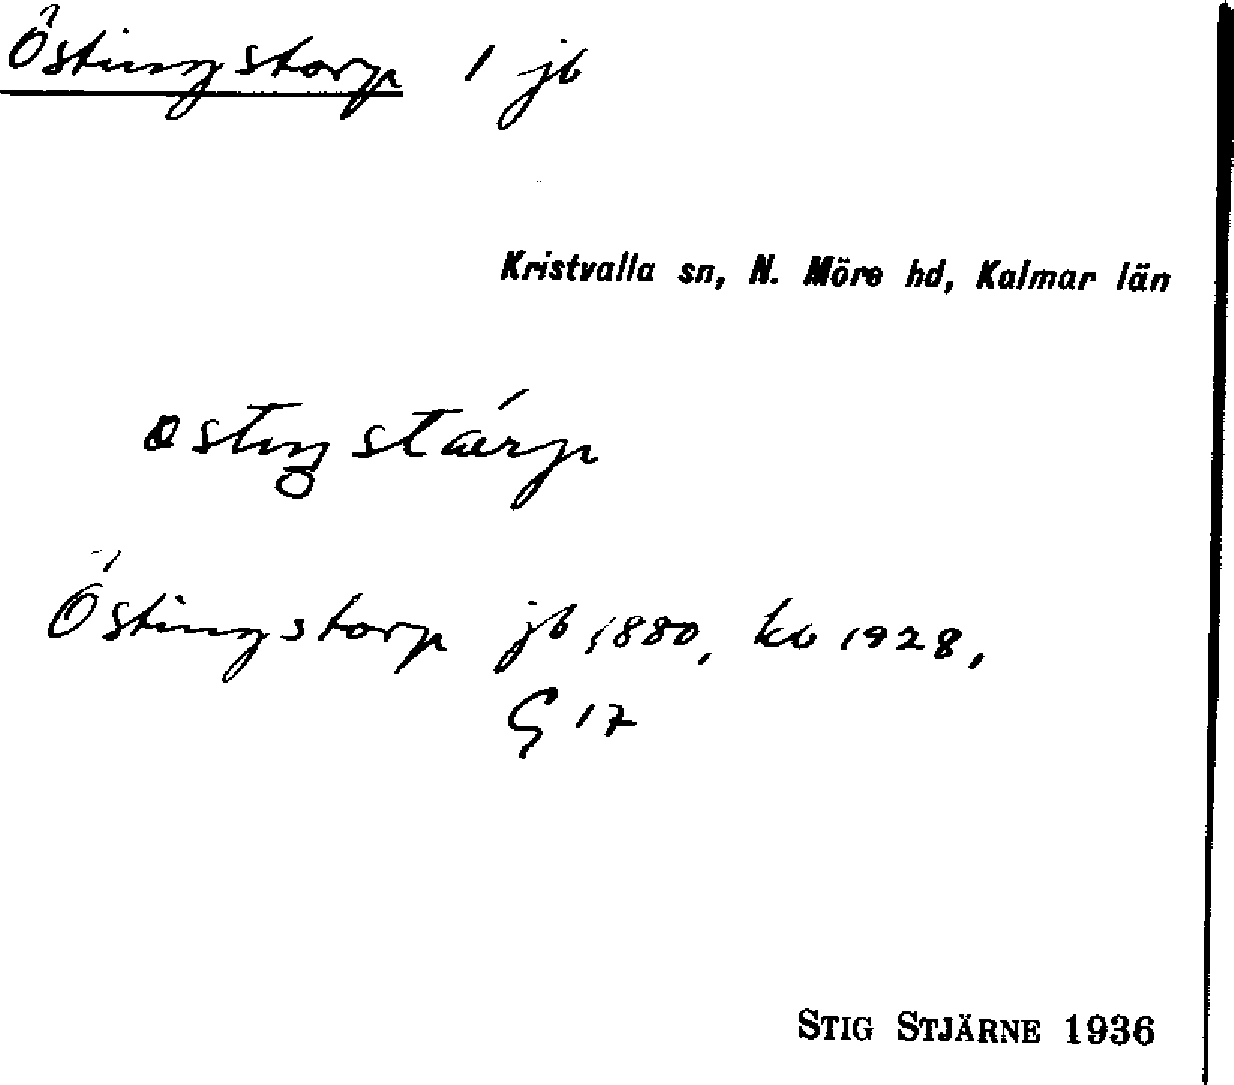 Östingstorp 1 jb
Kristvalla sn, N. Möre hd, Kalmar län
Östingstorp jb 1880, kb 1928,
G 17
STIG STJÄRNE 1936